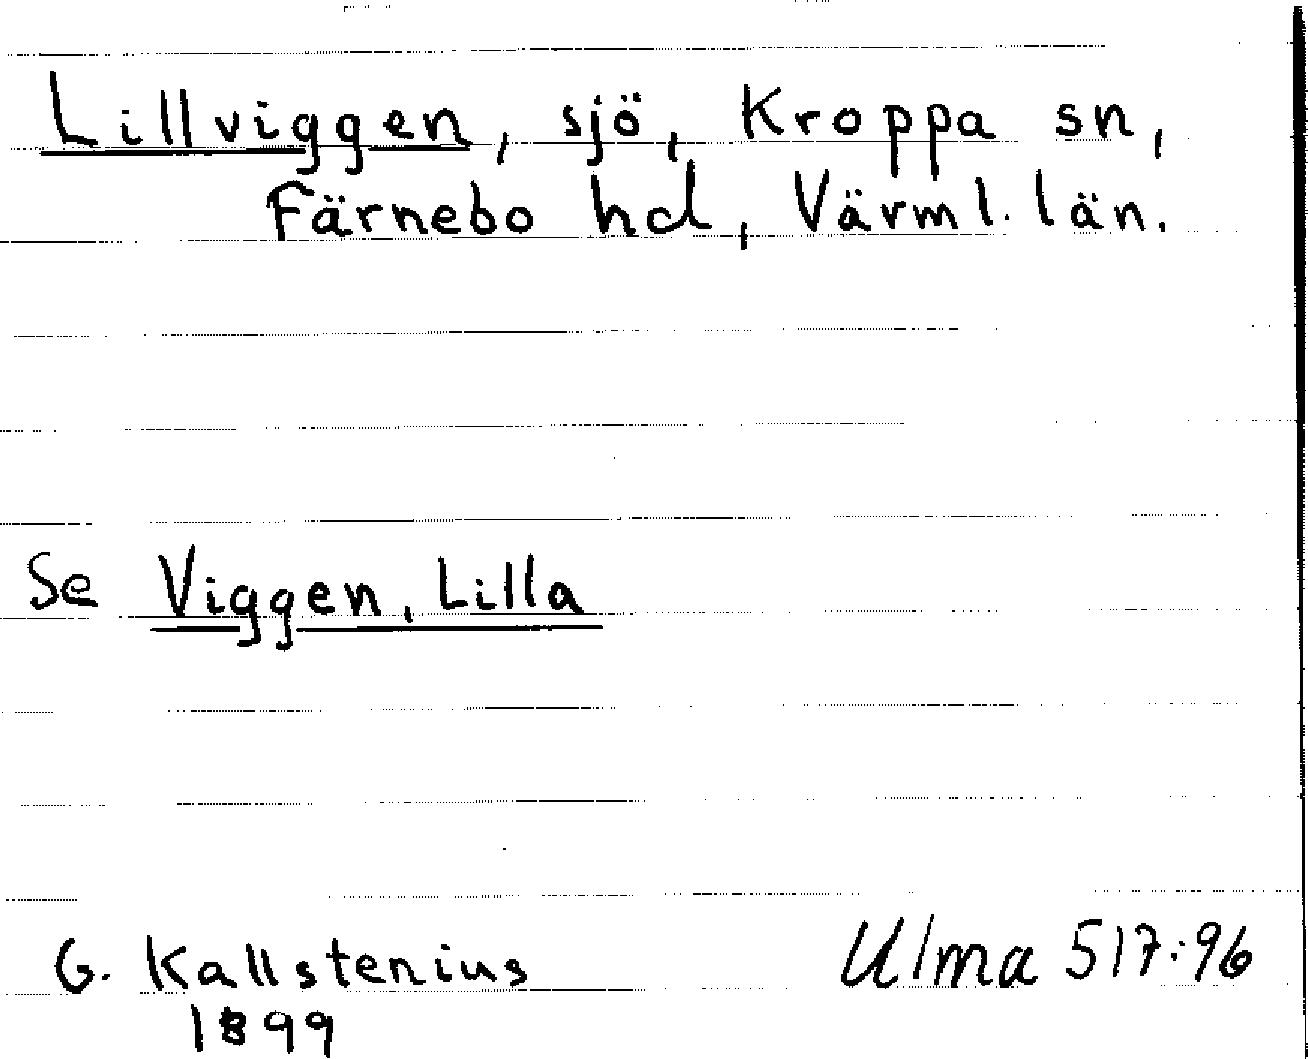 Lillviggen, sjö, Kroppa sn,
Färnebo hd, Värml. län.
Se Viggen, Lilla
G. Kallstenius Ulma 517:96
1899